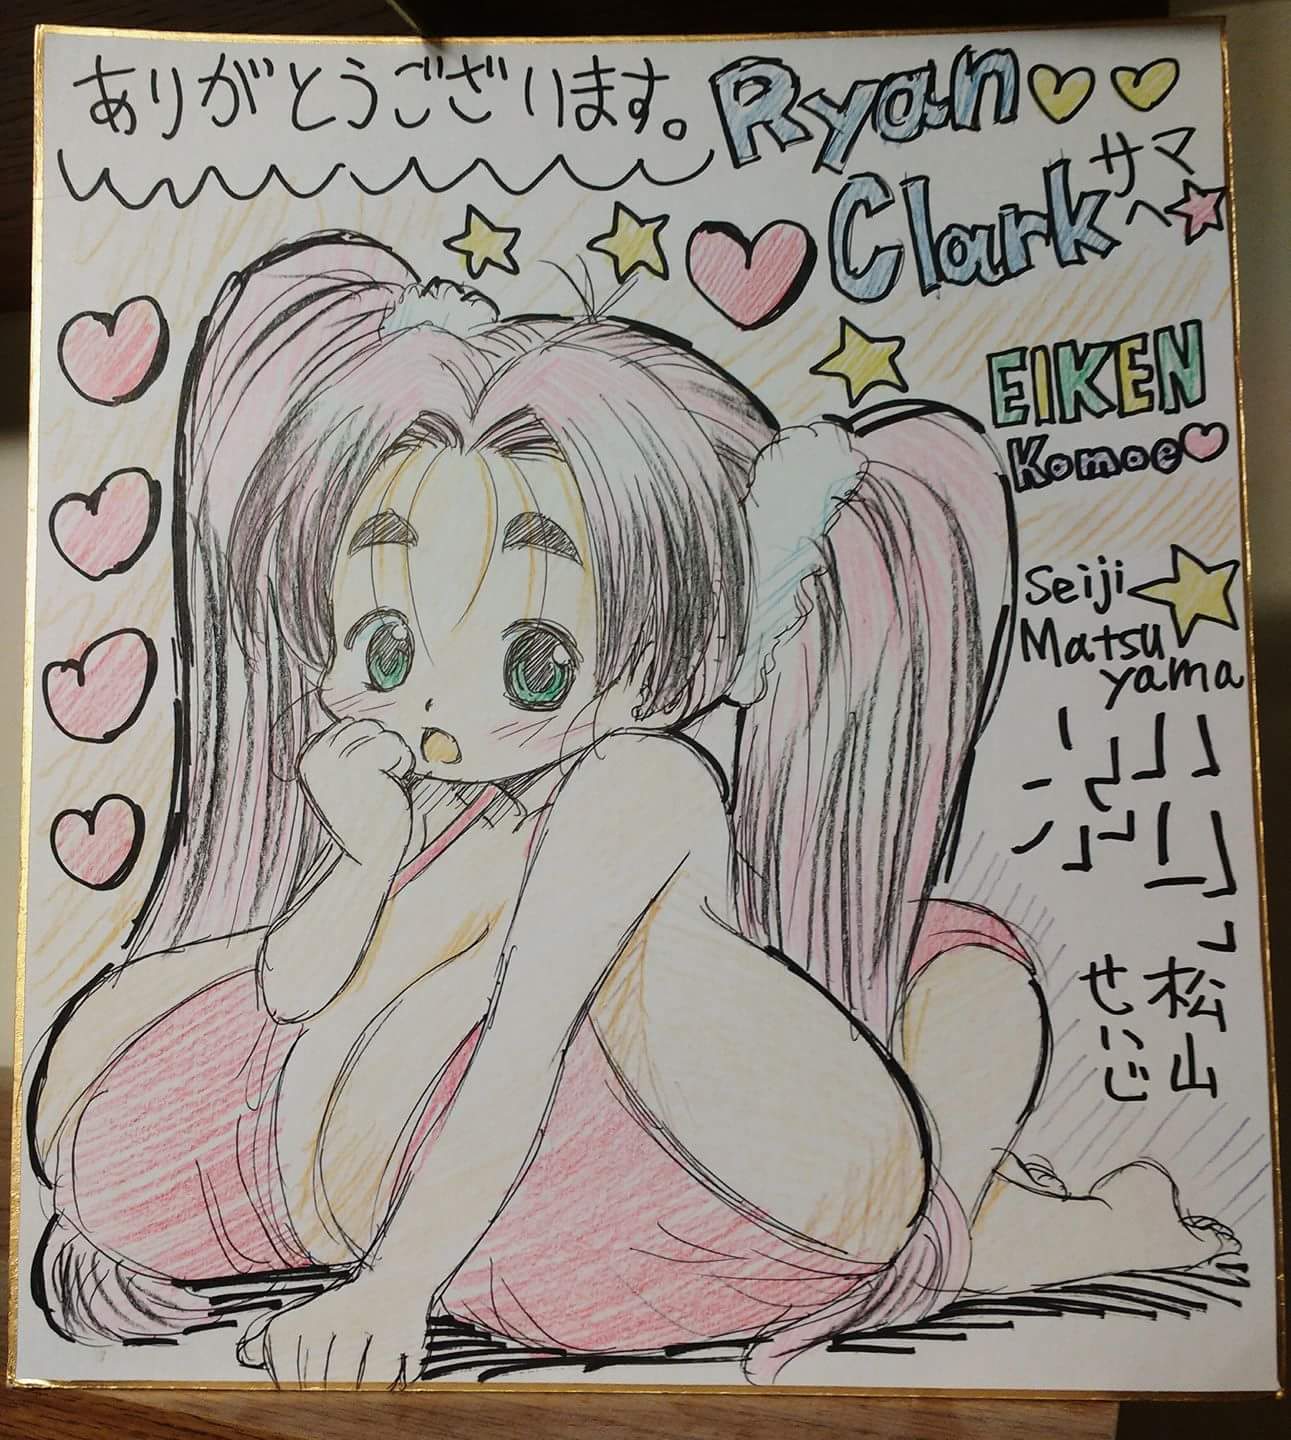 ありがとうございます。
Ryan
Clark
サマ
へ
EIKEN
Komoe
Seiji
Matsu
yama
松山
せいじ